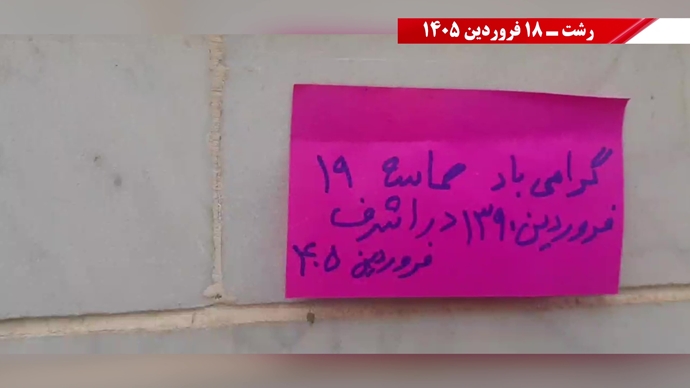 رشت ــ ۱۸ فروردین ۱۴۰۵
گرامی باد حماسه ۱۹
فروردین ۱۳۹۰ در اشرف
فروردین ۴۰۵